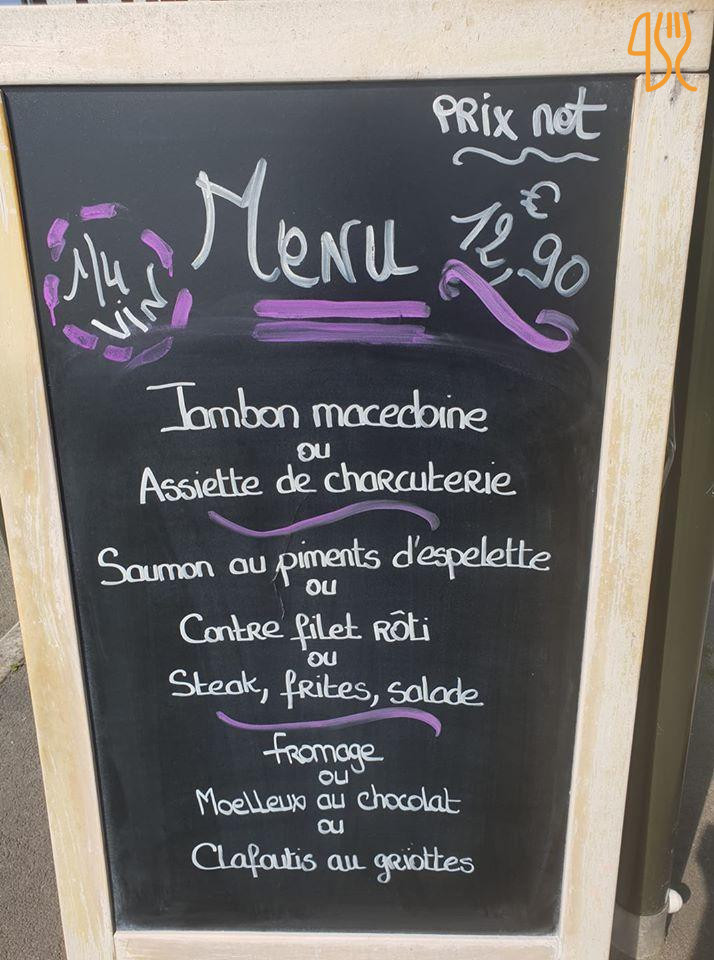 PRIX net
12,90 €
1/4
VIN
Menu
Jambon macedoine
ou
Assiette de charcuterie
Saumon au piments d'espelette
ou
Contre filet RÔti
ou
Steak, frites, salade
fromage
ou
Moelleux au chocolat
ou
Clafoutis au griottes